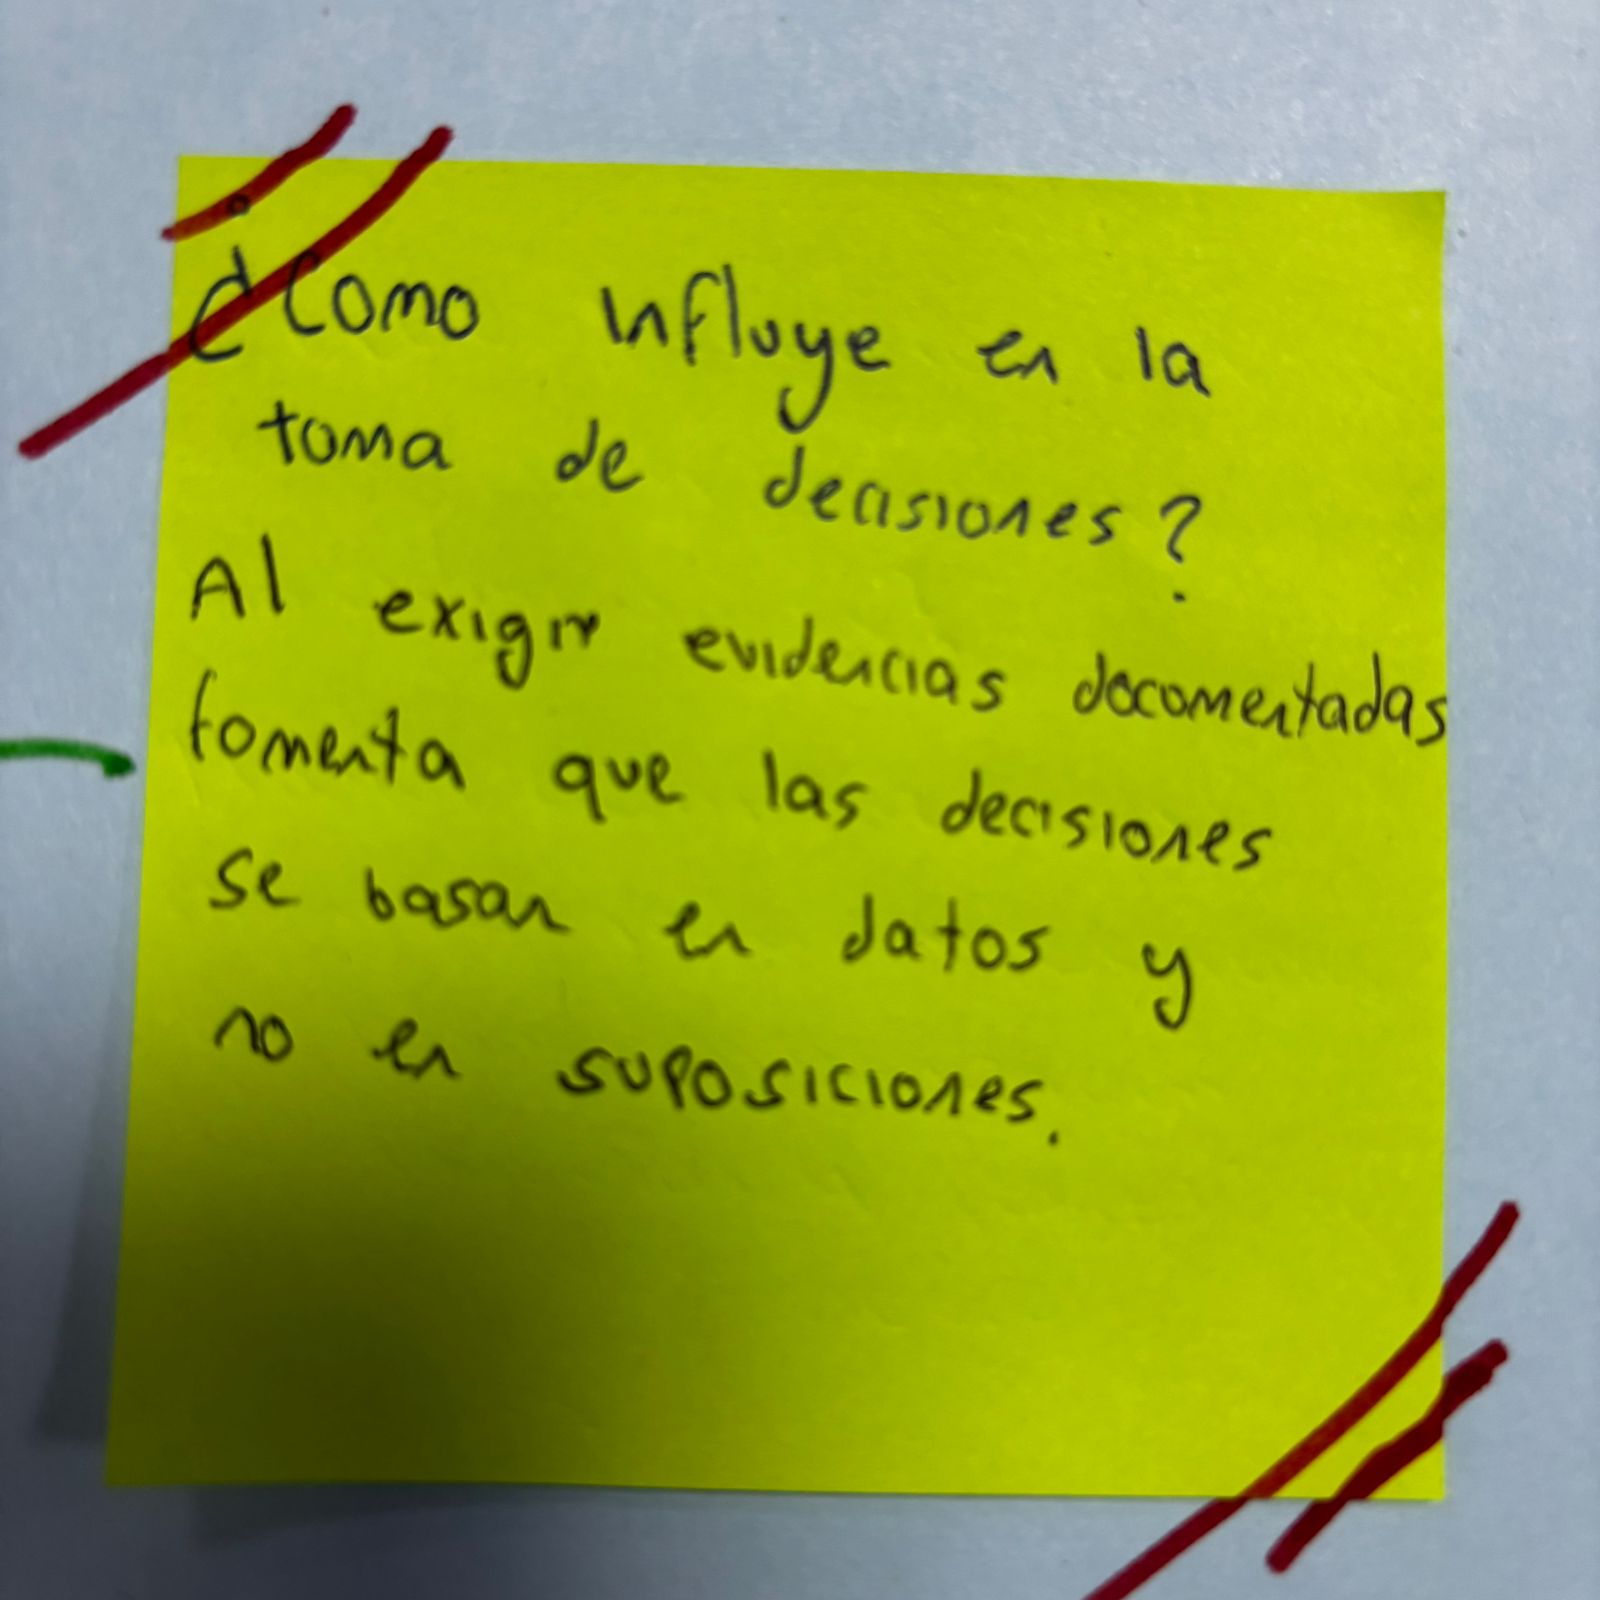 ¿Como influye en la
toma de decisiones?
Al exigir evidencias documentadas
fomenta que las decisiones
se basan en datos y
no en suposiciones.